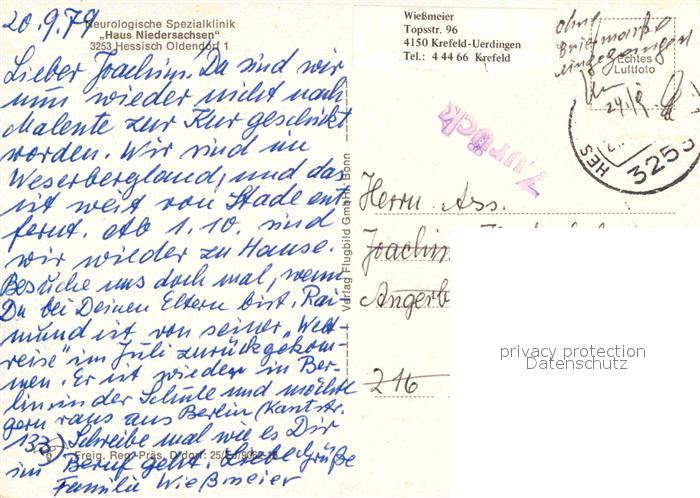 20.9.79
Neurologische Spezialklinik
„Haus Niedersachsen"
3253 Hessisch Oldendorf 1
Lieber Joachim! Da sind wir
nun wieder nicht nach
Malente zur Kur geschickt
worden. Wir sind im
Weserbergland, und das
ist weit von Stade ent
fernt. Ab 1.10. sind
wir wieder zu Hause.
Besuche uns doch mal, wenn
Du bei Deinen Eltern bist. Rai-
mund ist von seiner „Welt
reise" im Juli zurückgekom-
men. Er ist wieder in Ber-
lin in der Schule und möchte
gern raus aus Berlin (Kantstr.
133) Schreibe mal wie es Dir
im Beruf geht. Liebe Grüße
Familie Wießmeier
Freig. Reg.-Präs. D'dorf:
Verlag Flugbild GmbH Bonn
Wießmeier
Topsstr. 96
4150 Krefeld-Uerdingen
Tel.: 4 44 66 Krefeld
ohne
Briefmarke
eingegangen
Echtes
Luftfoto
Zurück
HES
3253
Herrn Ass.
Joachim
Angerb
216
privacy protection
Datenschutz